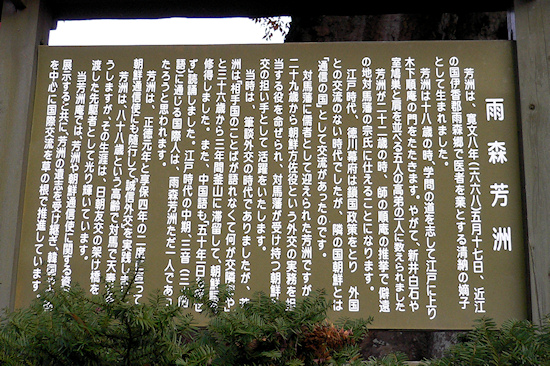 雨森芳洲
芳洲は、寛文八年(一六六八)五月十七日、近江
の国伊香郡雨森郷で医者を業とする清納の嫡子
として生まれました。
芳洲は十八歳の時、学問の道を志して江戸に上り
木下順庵の門をたたきます。やがて、新井白石や
室鳩巣と肩を並べる五人の高弟の一人に数えられました
芳洲が二十二歳の時、師の順庵の推挙で僻遠
の地対馬藩の宗氏に仕えることになります。
江戸時代、徳川幕府は鎖国政策をとり、外国
との交流のない時代でしたが、隣の国朝鮮とは
「通信の国」として交流があったのです。
対馬藩に儒者として迎えられた芳洲ですが
二十九歳から朝鮮方佐役という外交の実務を担
当する役を命ぜられ、対馬藩が受け持つ朝鮮
交の担い手として活躍をいたします。
当時は、筆談外交の時代でありましたが、芳
洲は「相手国のことばが解れなくて何が交隣ぞや
と三十六歳から三年間釜山に滞留して、朝鮮語
修得しました。また、中国語も「五十年一日
ず」聴講しました。江戸時代の中期、三音(三
語)に通じる国際人は、雨森芳洲ただ一人であ
たろうと思われます。
芳洲は、正徳元年と享保四年の二度にわたって
朝鮮通信使にも随行して「誠信外交」を実践しま
芳洲は、八十八歳という高齢で対馬で天寿を
うしますが、その生涯は、日朝友交の架け橋を
渡した先駆者として光り輝いています。
当芳洲庵では、芳洲や朝鮮通信使に関する資
展示すると共に、芳洲の遺志を受け継ぎ、韓国
を中心に国際交流を草の根で推進しています